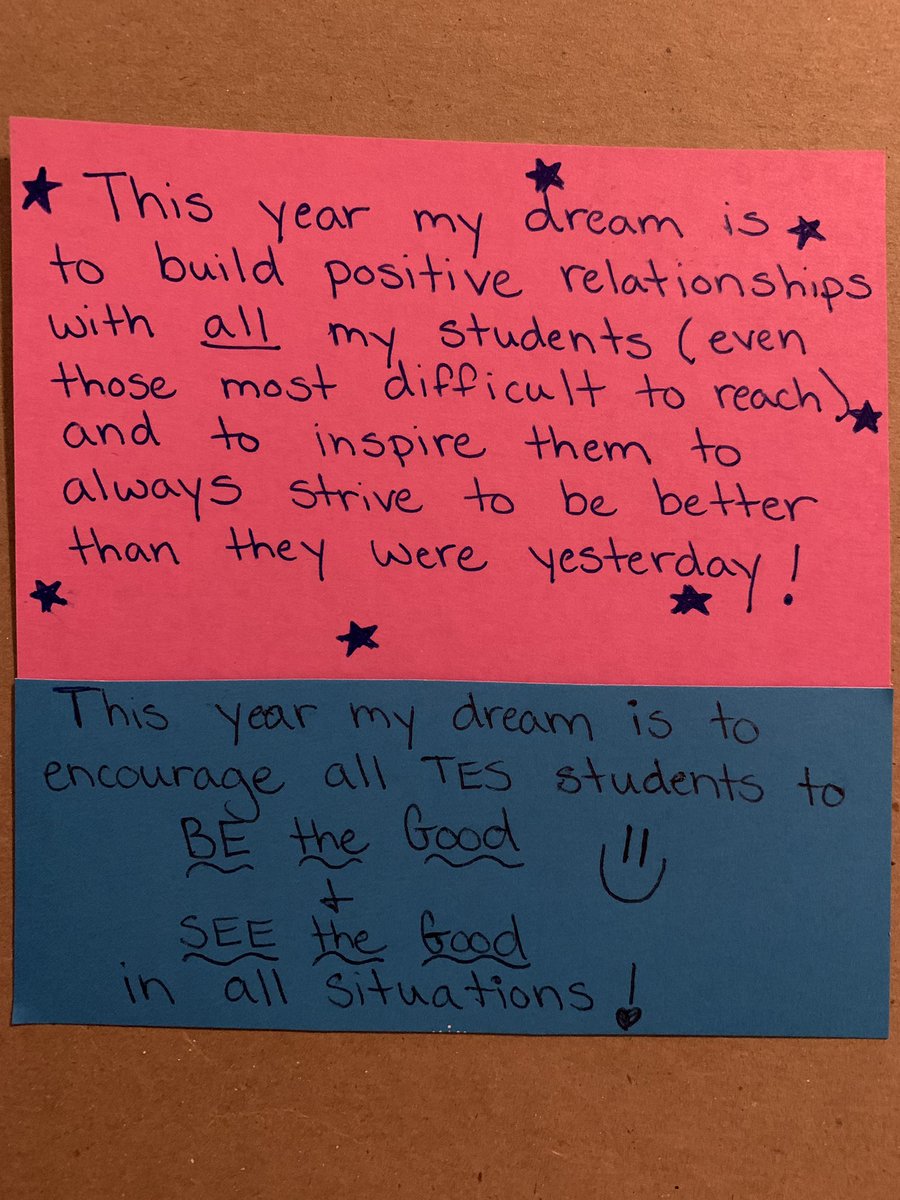 This year my dream is
to build positive relationships
with all my students (even
those most difficult to reach)
and to inspire them to
always strive to be better
than they were yesterday!
This year my dream is to
encourage all TES students to
BE the Good
+
SEE the Good
in all situations!